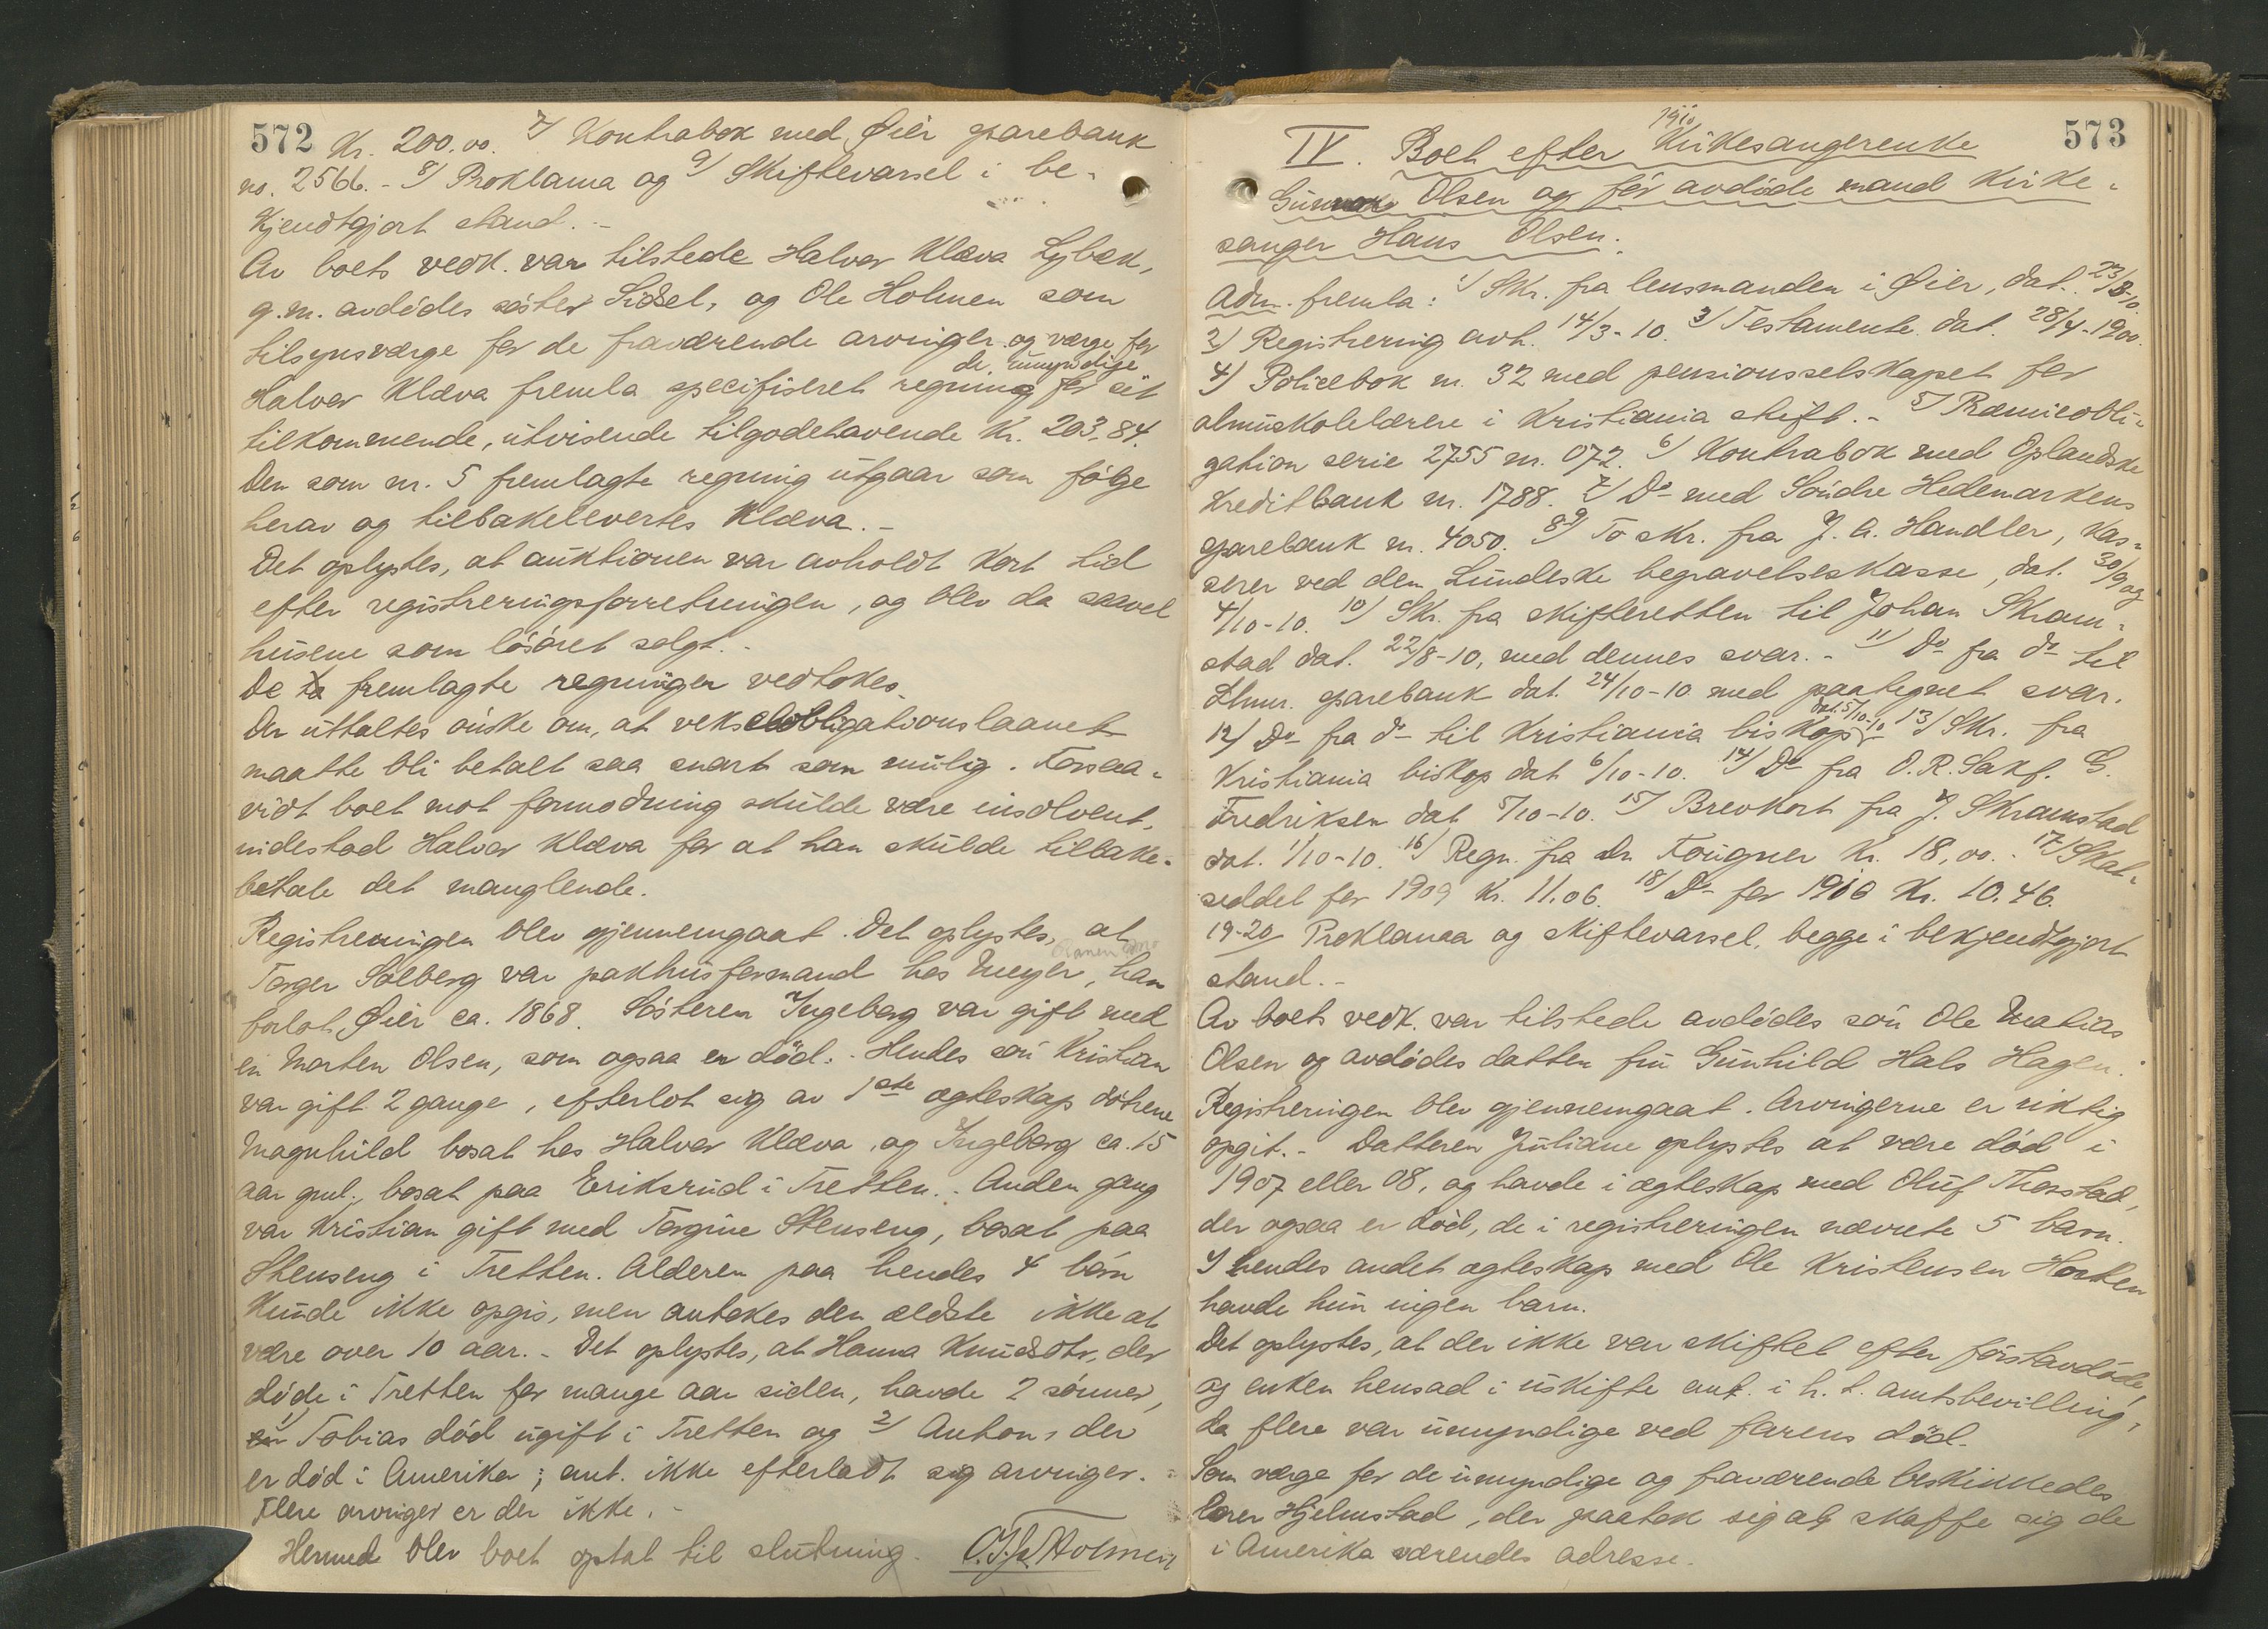 572 Kr. 200.00. 7/ Kontrabok med Øier sparebank
no. 2566. - 8/ Proklama og 9/ Skiftevarsel i be-
kjendtgjort stand. -
Av boets vedk. var tilstede Halvor Klæva Lybæk,
g.m. avdødes søster Sidsel, og Ole Holmen som
tilsynsværge for de fraværende arvinger og værge for
de umyndige
Halvor Klæva fremla specifiseret regning for sit
tilkommende, utvisende tilgodehavende Kr. 203,84.
Den som nr. 5 fremlagte regning utgaar som følge
herav og tilbakelevertes Klæva. -
Det oplystes, at auktionen var avholdt kort tid
efter registreringsforretningen, og blev da saavel
husene som løsøret solgt. -
De fremlagte regninger vedtokes.
Der uttaltes ønske om, at vekselobligationslaanet
maatte bli betalt saa snart som mulig. Forsaa-
vidt boet mot formodning skulde være insolvent,
indestod Halvor Klæva for at han skulde tilbake-
betale det manglende.
Registreringen blev gjennemgaat. Det oplystes, at
Torger Solberg var pakhusformand hos Meyer, han
forlot Øier ca. 1868. Søsteren Ingeborg var gift med
en Morten Olsen, som ogsaa er død. - Hendes søn Kristian
var gift 2 gange, efterlot sig av 1ste egteskap døtrene
Magnhild bosat hos Halvor Klæva, og Ingeborg ca. 15
aar gml., bosat paa Eriksrud i Tretten. - Anden gang
var Kristian gift med Torgine Stenseng, bosat paa
Stenseng i Tretten. Alderen paa hendes 4 børn
kunde ikke opgis, men antokes den ældste ikke at
være over 10 aar. - Det oplystes, at Hanna Knudsdtr, der
døde i Tretten for mange aar siden, havde 2 sønner,
1/ Tobias død ugift i Tretten og 2/ Anton, der
er død i Amerika; ant. ikke efterladt sig arvinger. -
Flere arvinger er der ikke. -
Hermed blev boet optat til slutning. Holmen
573
1910
IV. Boet efter Kirkesangerenke
Olsen og før avdøde mand kirke-
sanger Hans Olsen.
Adm. fremla: 1/ Skr. fra lensmanden i Øier, dat. 23/3-10.
2/ Registrering avh. 14/3-10. 3/ Testamente dat. 28/4-1900.
4/ Policebok nr. 32 med pensionsselskapet for
almuskolelærere i Kristiania stift. - 5/ Præmieobli-
gation serie 2755 nr. 072. 6/ Kontrabok med Oplandske
Kreditbank nr. 1788. 7/ Do med Søndre Hedemarkens
sparebank nr. 4050. 8-9/ To skr. fra J. A. Handler, kas-
serer ved den Lundeske begravelseskasse, dat. 30/9 og
4/10-10. 10/ Skr. fra skifteretten til Johan Skram-
stad dat. 22/8-10, med dennes svar. - 11/ Do fra do til
Lhmr. sparebank dat. 24/10-10 med paategnet svar.
dat. 5/10-10
12/ Do fra do til Kristiania biskop 13/ Skr. fra
Kristiania biskop dat 6/10-10. 14/ Do fra O.R.Sakf. G.
Fredriksen dat 5/10-10. 15/ Brevkort fra J. Skramstad
dat. 1/10-10. 16/ Regn. fra Dr. Fougner Kr. 18,00. - 17/ Skat-
seddel for 1909 Kr. 11.06. 18/ Do for 1910 Kr. 10.46.
19-20/ Proklama og skiftevarsel, begge i bekjendtgjort
stand. -
Av boets vedk. var tilstede avdødes søn Ole Matias
Olsen og avdødes datter fru Gunhild Hals Hagen.
Registreringen blev gjennemgaat. Arvingerne er riktig
opgit. - Datteren Juliane oplystes at være død i
1907 eller 08, og havde i egteskap med Oluf Thorstad,
der ogsaa er død, de i registreringen nævnte 5 barn.
I hendes andet egteskap med Ole Kristensen Horten
havde hun ingen barn.
Det oplystes, at der ikke var skiftet efter førstavdøde,
og enken hensad i uskifte ant. i h. t. amtsbevilling,
da flere var umyndige ved farens død.
Som værge for de umyndige og fraværende beskikkedes
lærer Hjelmstad, der paatok sig at skaffe sig de
i Amerika værendes adresse.